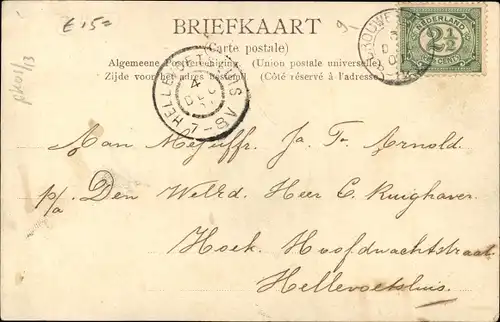 € 15=
9-
BRIEFKAART
(Carte postale)
Algemeene Postvereeniging (Union postale universelle)
Zijde voor het adres bestemd (Côté réservé à l'adresse)
NEDERLAND
2½
CENT
HELLEVOETSLUIS
4
DEC
7-8V
BROUWE
Aan Mejuffr. Ja. Tr. Arnold.
p/a Den WelEd. Heer C. Ruighaver.
Hoek Hoofdwachtstraat
Hellevoetsluis.